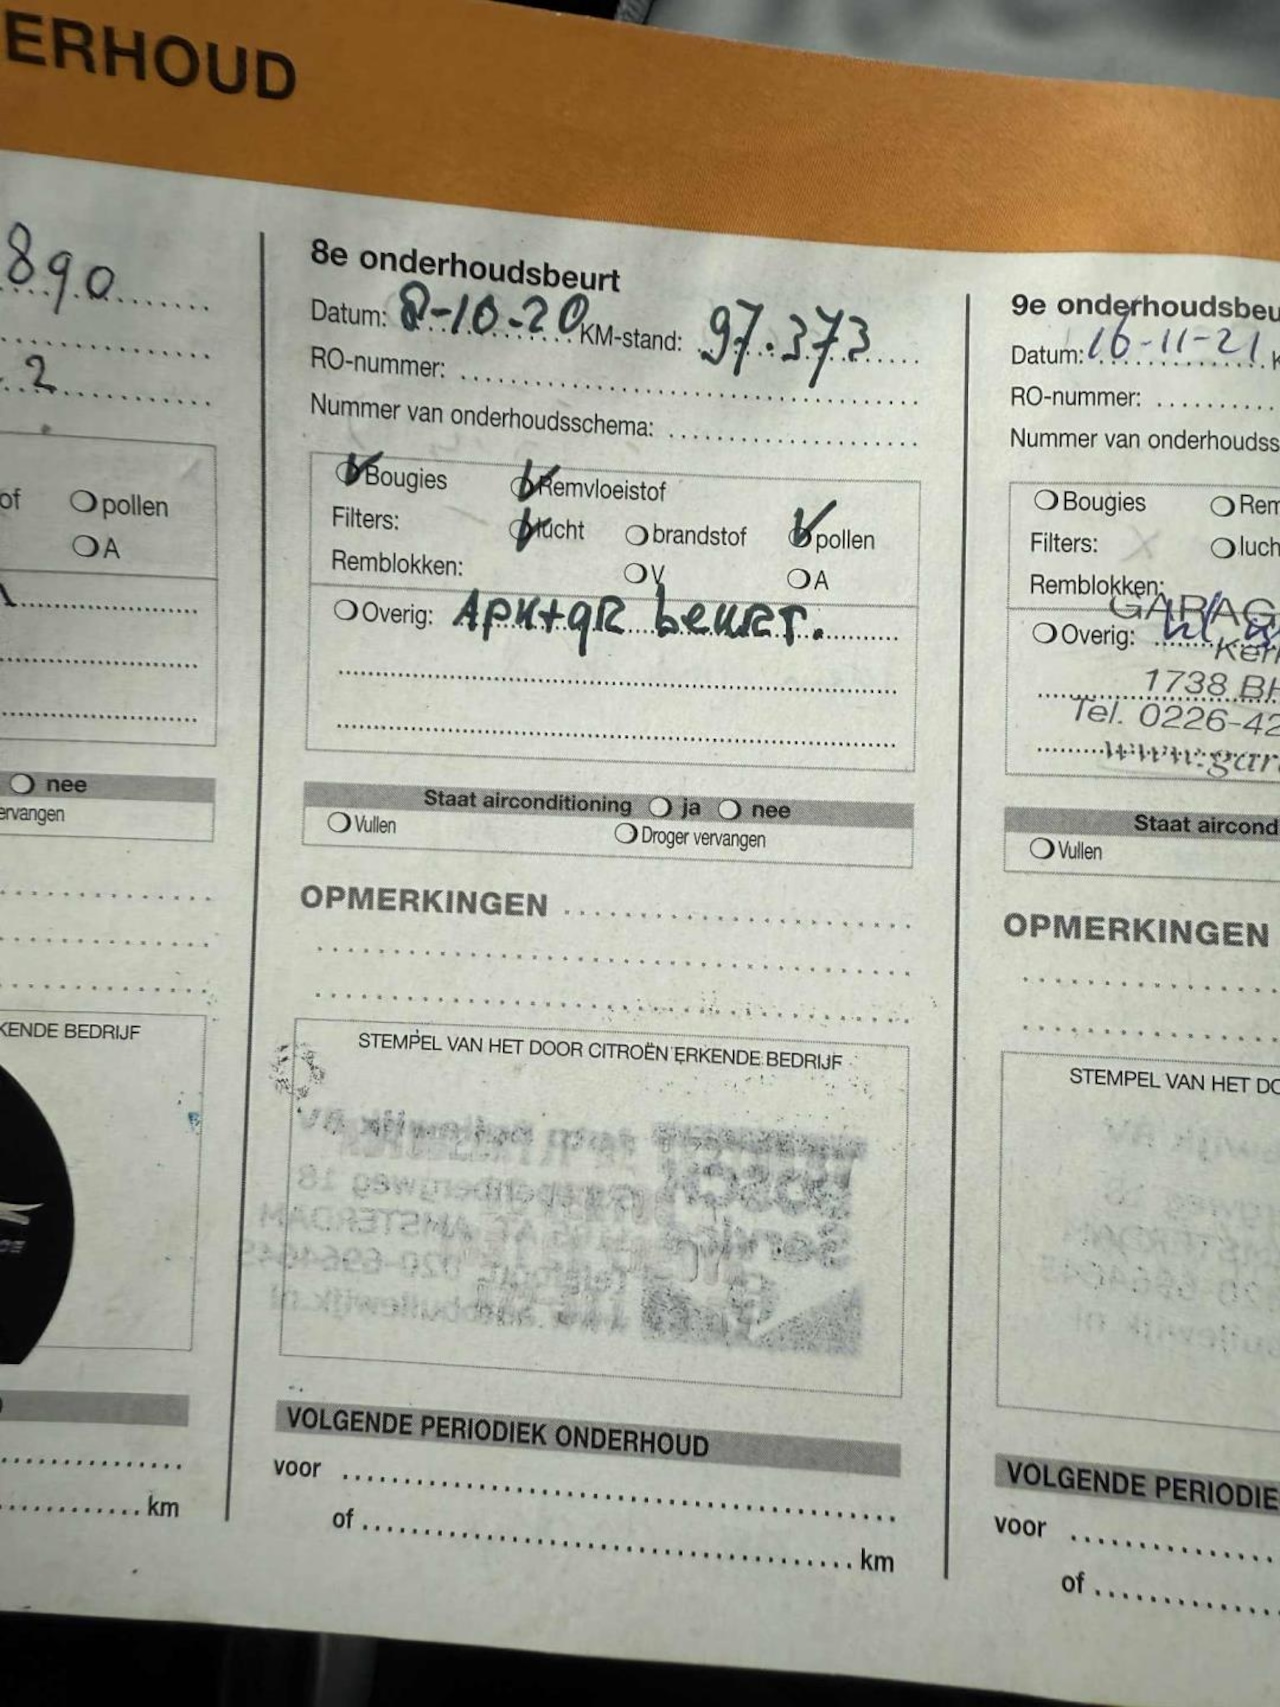 ERHOUD
890
2
of pollen
A
nee
ervangen
KENDE BEDRIJF
km
8e onderhoudsbeurt
Datum: 8-10-20 KM-stand: 97.373
RO-nummer:
Nummer van onderhoudsschema:
Bougies Remvloeistof
Filters: lucht brandstof pollen
Remblokken: V A
Overig: APK+gR beurt.
Staat airconditioning ja nee
Vullen Droger vervangen
OPMERKINGEN
STEMPEL VAN HET DOOR CITROËN ERKENDE BEDRIJF
Bosch
Service
VOLGENDE PERIODIEK ONDERHOUD
voor
of km
9e onderhoudsbeu
Datum: 16-11-21 K
RO-nummer:
Nummer van onderhoudss
Bougies Rem
Filters: luch
Remblokken:
GARAG
Overig:
Ker
1738 BH
Tel. 0226-42
www.gar
Staat aircond
Vullen
OPMERKINGEN
STEMPEL VAN HET DO
VOLGENDE PERIODIE
voor
of